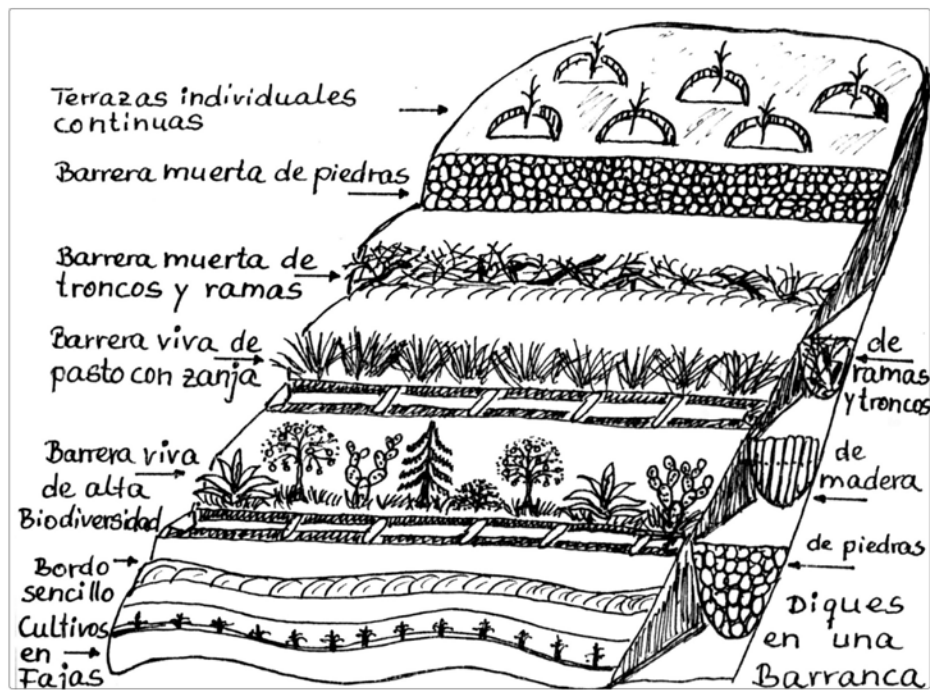 Terrazas individuales
continuas
Barrera muerta de piedras
Barrera muerta de
troncos y ramas
Barrera viva de
pasto con zanja
Barrera viva
de alta
Biodiversidad
Bordo
sencillo
Cultivos
en
Fajas
de
ramas
y troncos
de
madera
de piedras
Diques
en una
Barranca